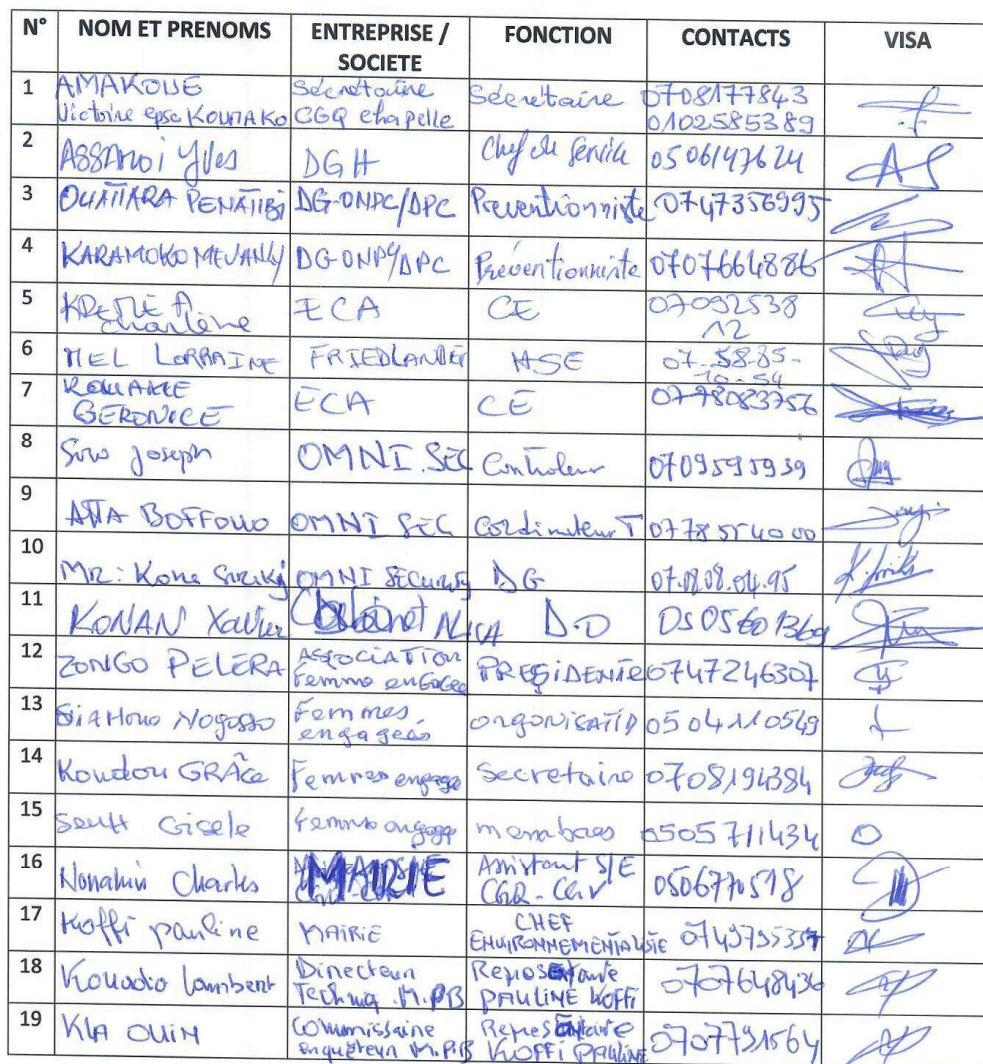 N° NOM ET PRENOMS ENTREPRISE / SOCIETE FONCTION CONTACTS VISA
1 AMAKOUE Victoire epse KOUMAKO Secrétaire CGQ chapelle Secrétaire 0708177843 0102585389
2 ASSAMOI Yves DGH Chef de Service 0506147624
3 OUATTARA PENATIBI DG-ONPC/DPC Preventionniste 0747356995
4 KARAMOKO DG-ONPC/DPC Préventionniste 0707664886
5 Charlène ECA CE 07092538 12
6 MEL LORRAINE FRIEDLANDER HSE 07-58-85-10-54
7 KOUAKE BERENICE ECA CE 0778083756
8 Soro Joseph OMNI.SEC Controleur 0709595939
9 ATTA BOFFOUO OMNI SEC Cordinateur T 0778554000
10 Mr: Kone OMNI SECURITY DG 07.08.08.04.95
11 KONAN Xavier Cabinet D.O 0505601369
12 ZONGO PELERA ASSOCIATION Femme engagée PRESIDENTE 0747246307
13 Nogosso Femmes engagées 0504110549
14 Koudou GRÂce Femmes engagé Secretaire 0708194384
15 Gisele Femme membres 0505711434
16 Charles MAIRIE Assistant S/E 0506770518
17 Koffi pauline MAIRIE CHEF ENVIRONNEMENTALISTE 0749795357
18 Kouadio Lambert Directeur Techniq. M.PB PAULINE KOFFI 0707648436
19 KLA OUIN Commissaire enquêteur M.P.B KOFFI PAULINE 0707791564